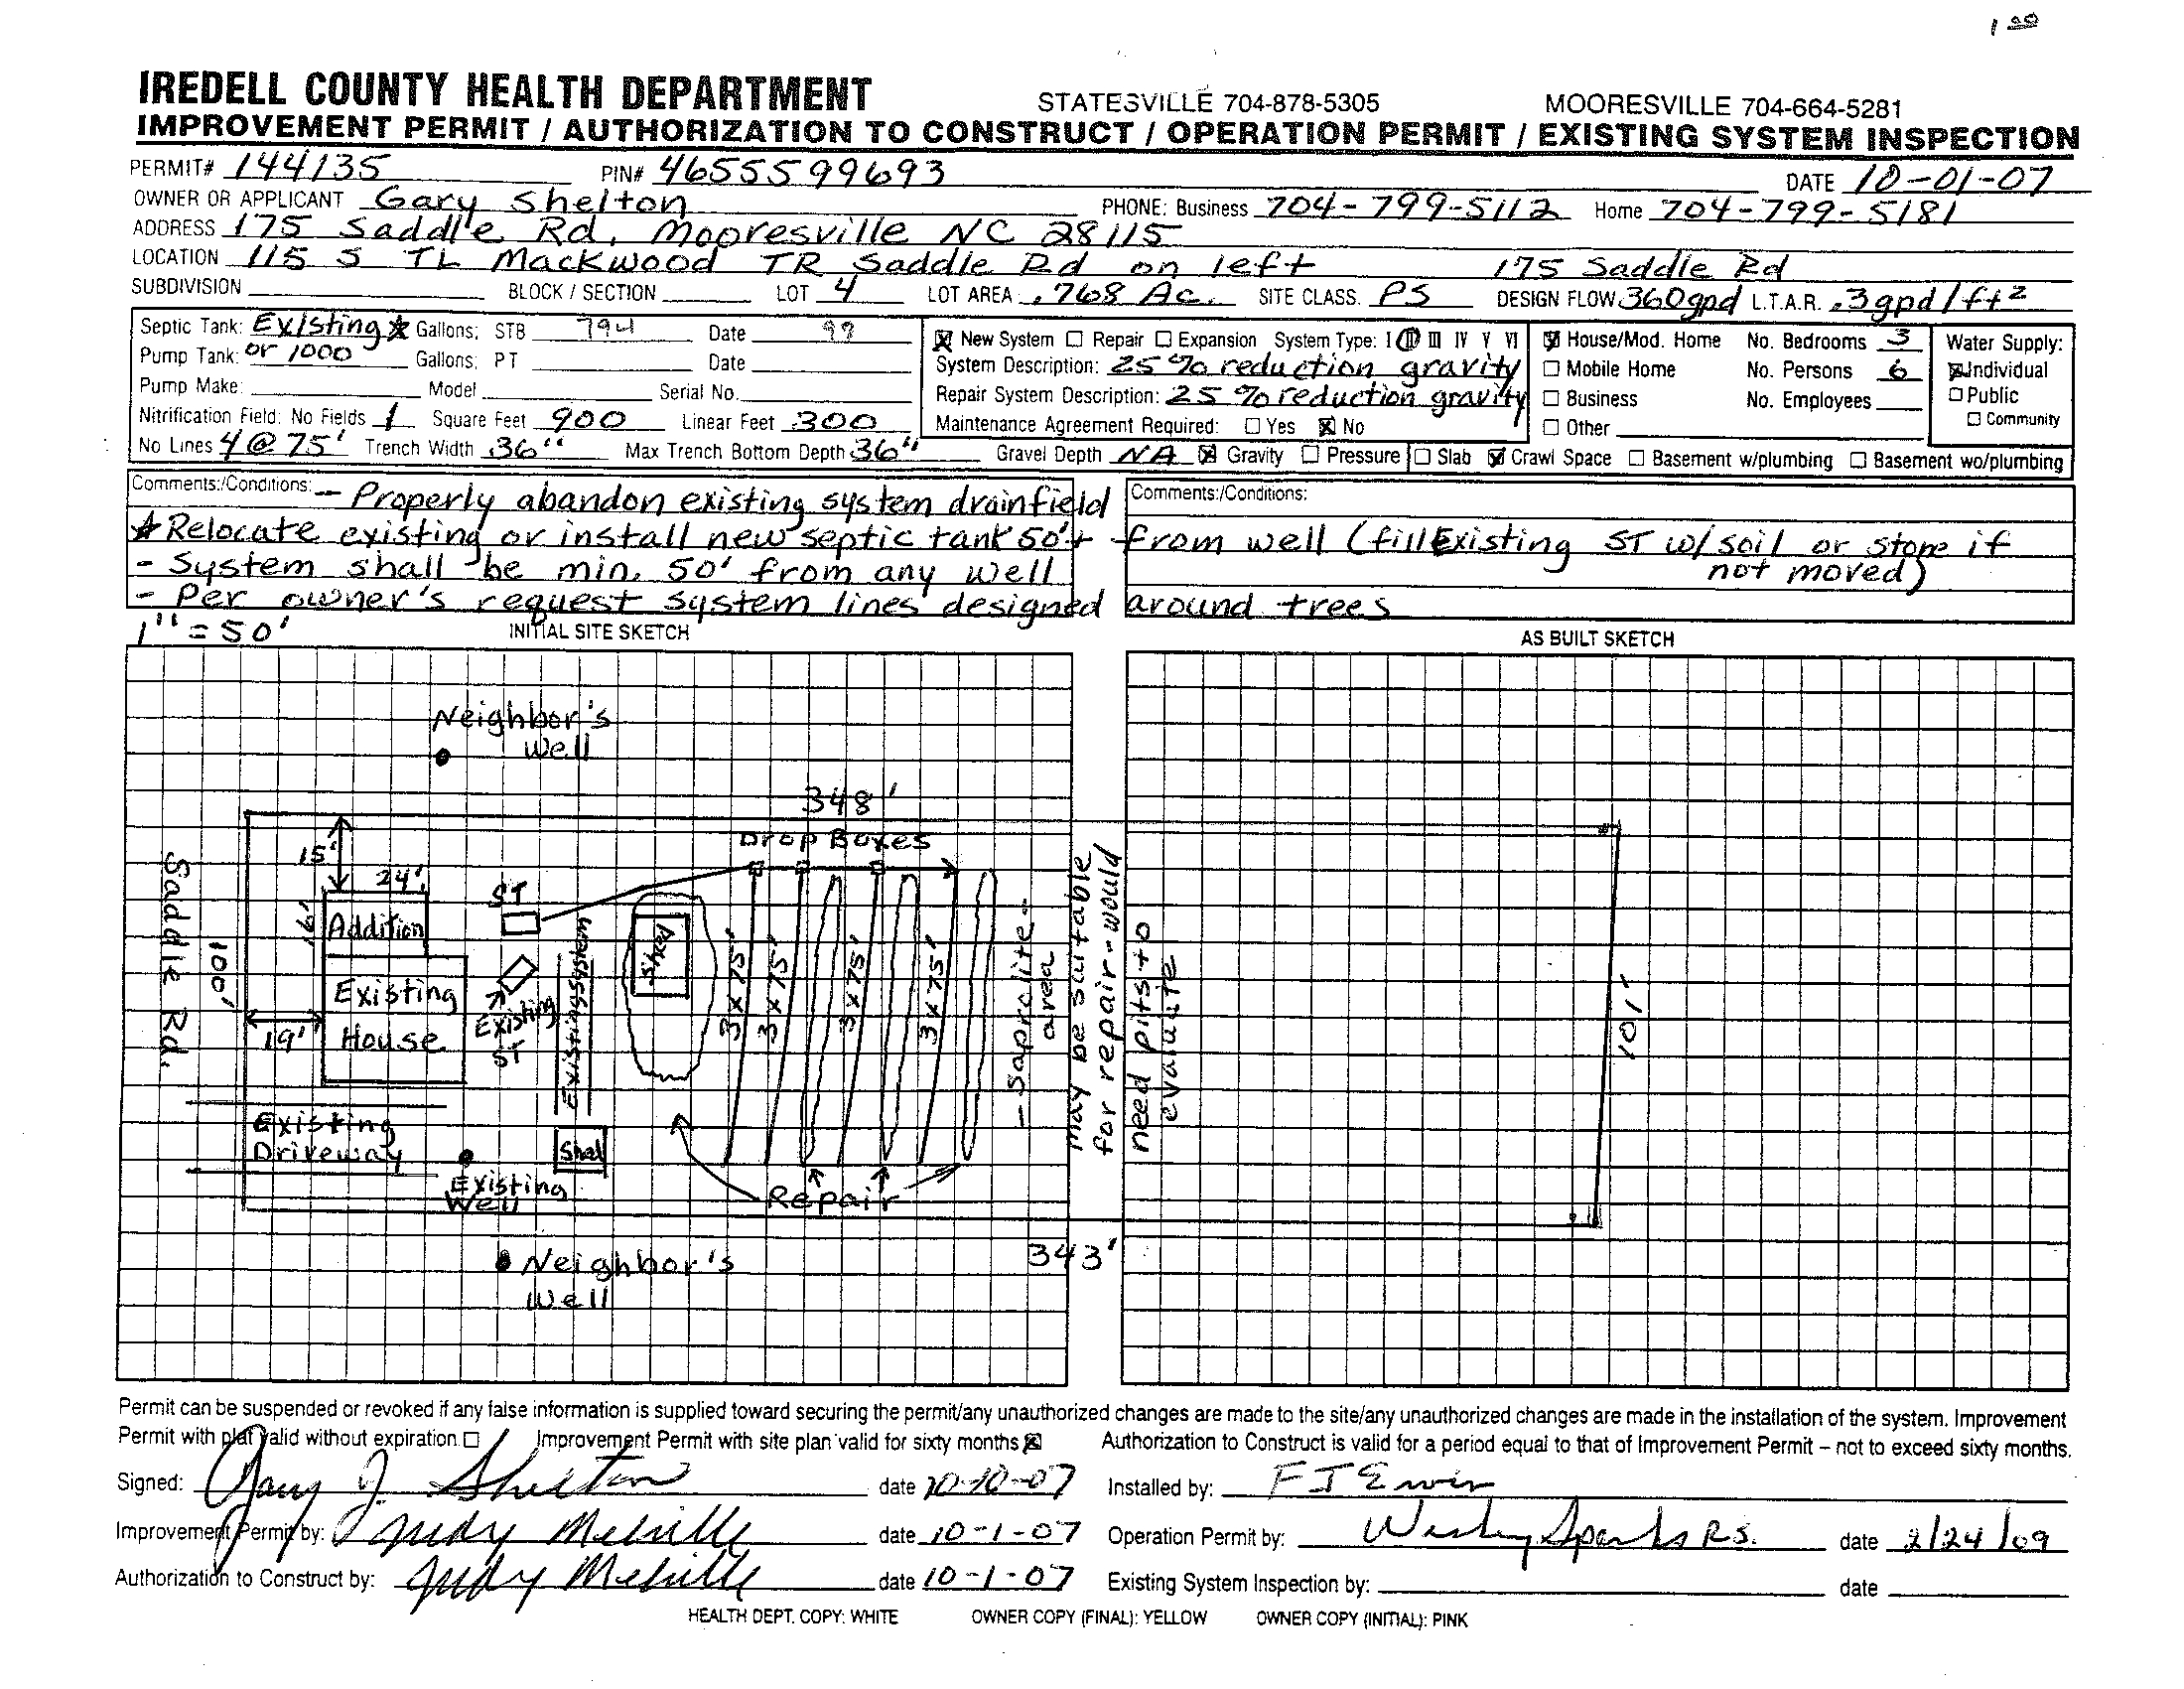 1 00
IREDELL COUNTY HEALTH DEPARTMENT STATESVILLE 704-878-5305 MOORESVILLE 704-664-5281
IMPROVEMENT PERMIT / AUTHORIZATION TO CONSTRUCT / OPERATION PERMIT / EXISTING SYSTEM INSPECTION
PERMIT# 144135 PIN# 4655599693 DATE 10-01-07
OWNER OR APPLICANT Gary Shelton PHONE: Business 704-799-5112 Home 704-799-5181
ADDRESS 175 Saddle Rd, Mooresville NC 28115
LOCATION 115 S TL Mackwood TR Saddle Rd on left 175 Saddle Rd
SUBDIVISION BLOCK / SECTION LOT 4 LOT AREA .768 Ac. SITE CLASS. PS DESIGN FLOW 360gpd L.T.A.R. .3gpd/ft2
Septic Tank: Existing* Gallons: STB 794 Date 99
Pump Tank: or 1000 Gallons: PT Date
Pump Make: Model Serial No.
Nitrification Field: No Fields 1 Square Feet 900 Linear Feet 300
No Lines 4@75' Trench Width 36" Max Trench Bottom Depth 36" Gravel Depth NA ☒ Gravity ☐ Pressure ☐ Slab ☒ Crawl Space ☐ Basement w/plumbing ☐ Basement wo/plumbing
☒ New System ☐ Repair ☐ Expansion System Type: I II III IV V VI
System Description: 25% reduction gravity
Repair System Description: 25% reduction gravity
Maintenance Agreement Required: ☐ Yes ☒ No
☒ House/Mod. Home No. Bedrooms 3
☐ Mobile Home No. Persons 6
☐ Business No. Employees
☐ Other
Water Supply:
☒ Individual
☐ Public
☐ Community
Comments:/Conditions: - Properly abandon existing system drainfield
Comments:/Conditions:
* Relocate existing or install new septic tank 50'+ from well (fill Existing ST w/ soil or stone if not moved)
- System shall be min. 50' from any well
- Per owner's request system lines designed around trees
1" = 50'
INITIAL SITE SKETCH
AS BUILT SKETCH
Neighbor's
Well
348'
Drop Boxes
15'
24'
ST
16'
Addition
Saddle Rd.
100'
Existing
House
19'
Existing
ST
Existing System
Shed
3x75'
3x75'
3x75'
3x75'
- Saprolite -
area
may be suitable
for repair - would
need pits to
evaluate
101'
Existing
Driveway
Shed
Existing
Well
Repair
343'
Neighbor's
Well
Permit can be suspended or revoked if any false information is supplied toward securing the permit/any unauthorized changes are made to the site/any unauthorized changes are made in the installation of the system. Improvement
Permit with plat valid without expiration. ☐ Improvement Permit with site plan valid for sixty months ☒ Authorization to Construct is valid for a period equal to that of Improvement Permit – not to exceed sixty months.
Signed: Gary J. Shelton date 10-10-07 Installed by: F J Ervin
Improvement Permit by: Judy Melville date 10-1-07 Operation Permit by: Wesley Sparks R.S. date 2/24/09
Authorization to Construct by: Judy Melville date 10-1-07 Existing System Inspection by: date
HEALTH DEPT. COPY: WHITE OWNER COPY (FINAL): YELLOW OWNER COPY (INITIAL): PINK